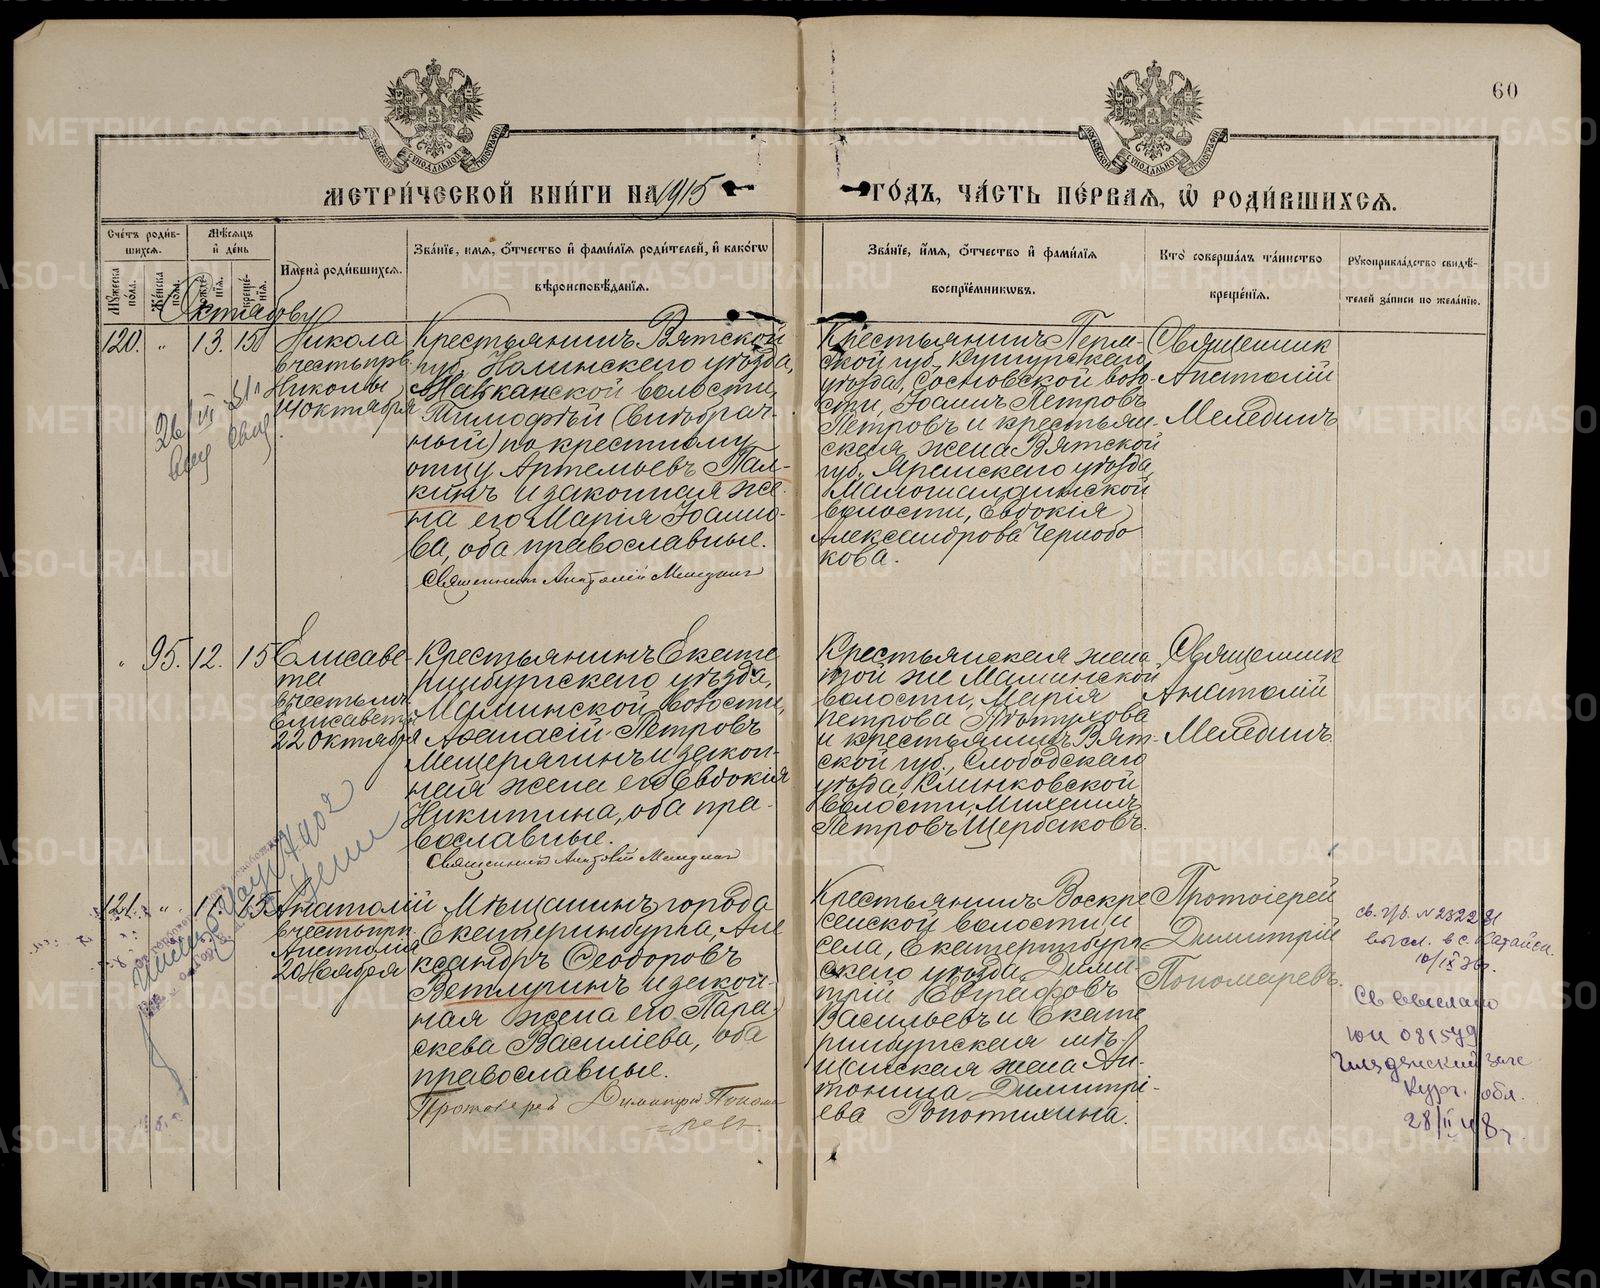 60
МЕТРИ́ЧЕСКОЙ КНИ́ГИ НА 1915
ГО́ДЪ, ЧА́СТЬ ПЕ́РВАѦ, Ѡ҆ РОДИ́ВШИХСѦ.
Сче́тъ роди́в-
шихсѧ.
Мꙋ́жеска
по́ла.
Же́нска
по́ла.
Мѣ́сѧцъ
и҆ де́нь
рожде-
нїѧ.
креще́-
нїѧ.
Имена̀ роди́вшихсѧ.
Зва́нїе, и́мѧ, ѻ҆́тчество и҆ фами́лїѧ роди́телей, и҆ како́гѡ
вѣроисповѣ́данїѧ.
Зва́нїе, и́мѧ, ѻ҆́тчество и҆ фами́лїѧ
воспрїе́мникѡвъ.
Кто̀ соверша́лъ та́инство
креще́нїѧ.
Рꙋкоприкла́дство свидѣ́-
телей за́писи по жела́нїю.
Октябрь
120. „ 13. 15
Никола
в честь прв.
Николы
14 октября
Крестьянинъ Вятской
губ. Нолинскаго уѣзда,
волости,
Тимоѳей (внѣбрач-
ный) по крестному
отцу Артемьевъ Пал-
кинъ и законная же-
на его Марія Іоанно-
ва, оба православные.
Священникъ Анатолій Меледин
Крестьянинъ Перм-
ской губ., Кунгурскаго
уѣзда, Сосновской воло-
сти, Іоаннъ Петровъ
Петровъ и крестьян-
ская жена Вятской
губ., Яранскаго уѣзда,
Малошалдинской
волости, Евдокія
Александрова Чернобо
кова.
Священник
Анатолій
Мелединъ
„ 95. 12. 15
Елисаве-
та
в честь мч.
Елисаветы
22 Октября
Крестьянинъ Екате
ринбургскаго уѣзда,
Маминской волости,
Аѳанасій Петровъ
Мещерягинъ и закон-
ная жена его Евдокія
Никитина, оба пра-
вославные.
Священникъ Анатолій Меледин
Крестьянская жена
той же Маминской
волости, Марія
Петрова Пѣтухова
и крестьянинъ Вят-
ской губ., Слободскаго
уѣзда, Климковской
волости, Михаилъ
Петровъ Щербаковъ.
Священник
Анатолій
Мелединъ
121. „ 11. 15
Анатолій
в честь прп.
Анатолія
20 Ноября
Мѣщанинъ города
Екатеринбурга, Але
ксандръ Ѳеодоровъ
Ветлугинъ и закон-
ная жена его Пара-
скева Василіева, оба
православные.
Протоіерей Димитрій Понома
=рев.
Крестьянинъ Воскре
сенской волости и
села, Екатеринбург
скаго уѣзда, Дими-
трій Евграфовъ
Васильевъ и Екате
ринбургская мѣ-
щанская жена Ан-
тонина Димитрі-
ева Ропотихина.
Протоіерей
Димитрій
Пономаревъ.
св. гр. N 2322
высл. в с. Катайск.
10/IX 36г.
Св выслано
ЮИ 081579
загс
Кург. обл.
28/II 48г.